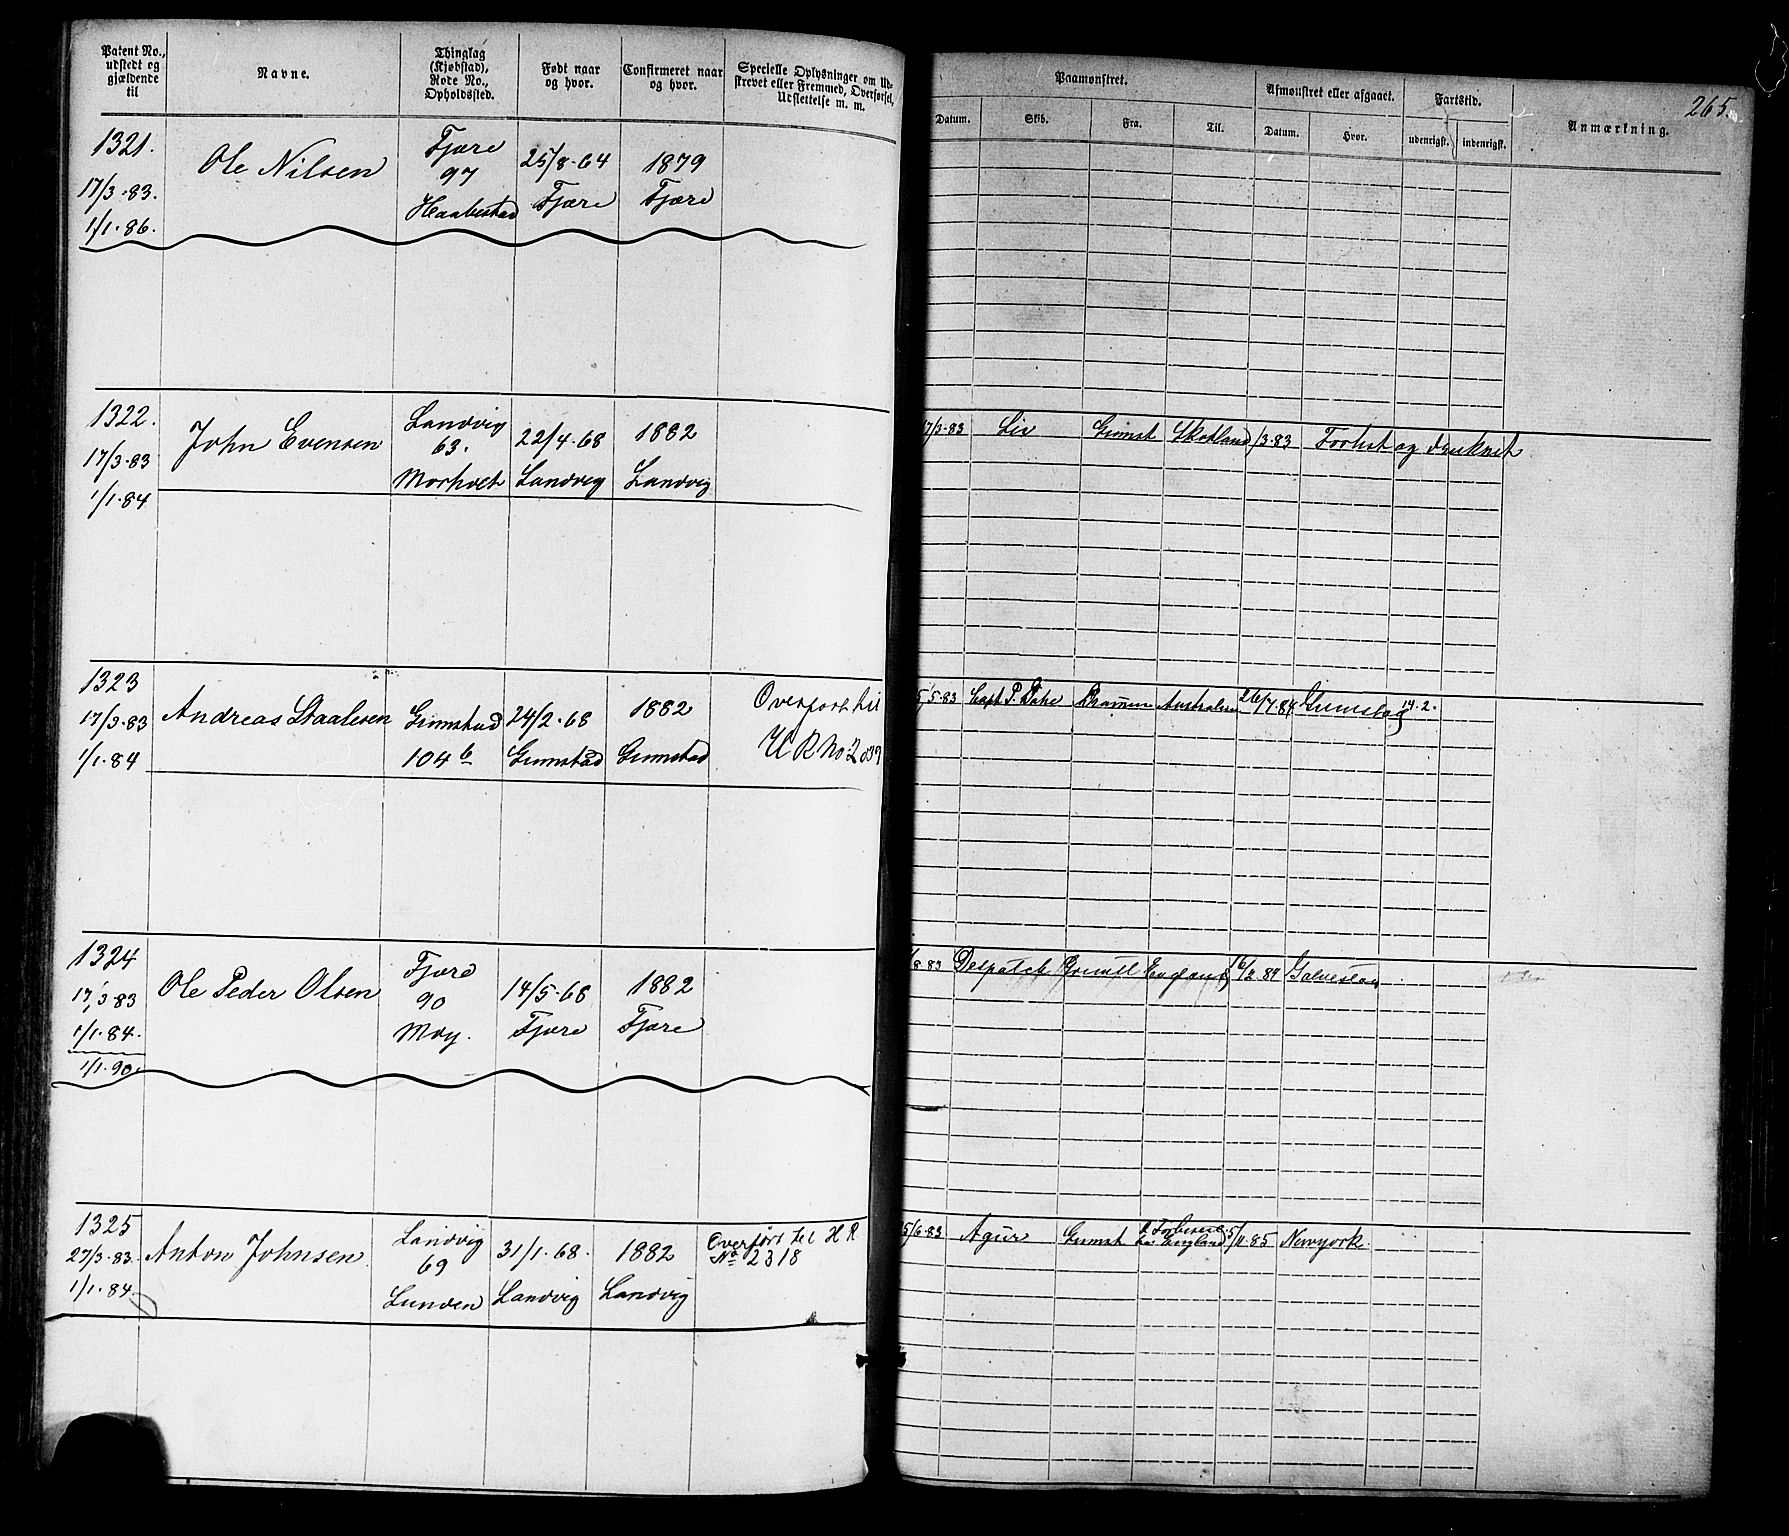 Patent No., udstedt og gjældende til
Navne.
Thinglag (Kjøbstad), Rode No., Opholdssted.
Født naar og hvor.
Confirmeret naar og hvor.
Specielle Oplysninger om Udskrevet eller Fremmed, Overførsel, Udslettelse m. m.
Paamønstret.
Datum. Skib. Fra. Til.
Afmønstret eller afgaaet.
Datum. Hvor.
Fartstid.
udenrigsk. indenrigsk.
Anmærkning.
265.
1321.
17/3·83.
1/1·86.
Ole Nilsen
Fjære
97
Haabestad
25/8·64
Fjære
1879
Fjære
1322.
17/3·83
1/1·84
John Evensen
Landvig
63.
Morhvet
22/4·68
Landvig
1882
Landvig
17/3·83 Liv Grimst Skotland /3·83 Forlist og druknet
1323
17/3·83
1/1·84
Andreas Staalesen
Grimstad
104 b
24/2·68
Grimstad
1882
Grimstad
Overført til
5/5·83 Capt. P. Australien 26/7·84 Grimstad 14·2·
1324
17/3·83
1/1·84.
1/1·90.
Ole Peder Olsen
Fjære
90
Moy.
14/5·68
Fjære
1882
Fjære
/8·83 Despatch Grimst England 16/2·84 Galveston
1325
27/3·83.
1/1·84.
Anton Johnsen
Landvig
69
Lunden
31/1·68.
Landvig
1882
Landvig
Overført til H R
No 2318
5/6·83 Agur Grimst England 5/11·85 Newyork